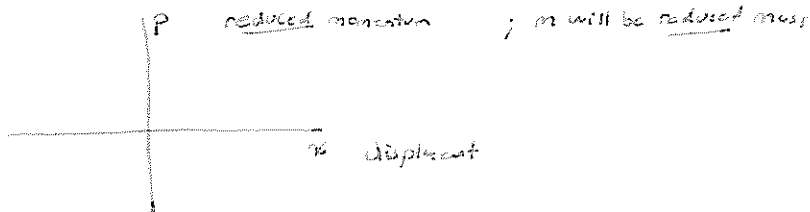 P reduced momentum ; m will be reduced mass
x displacement